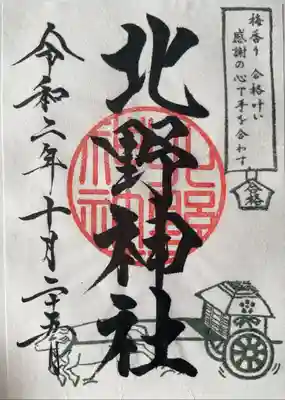 梅香り 合格叶い
感謝の心で手を合わす
合格
北野神社
北野神社
令和二年十月二十五日